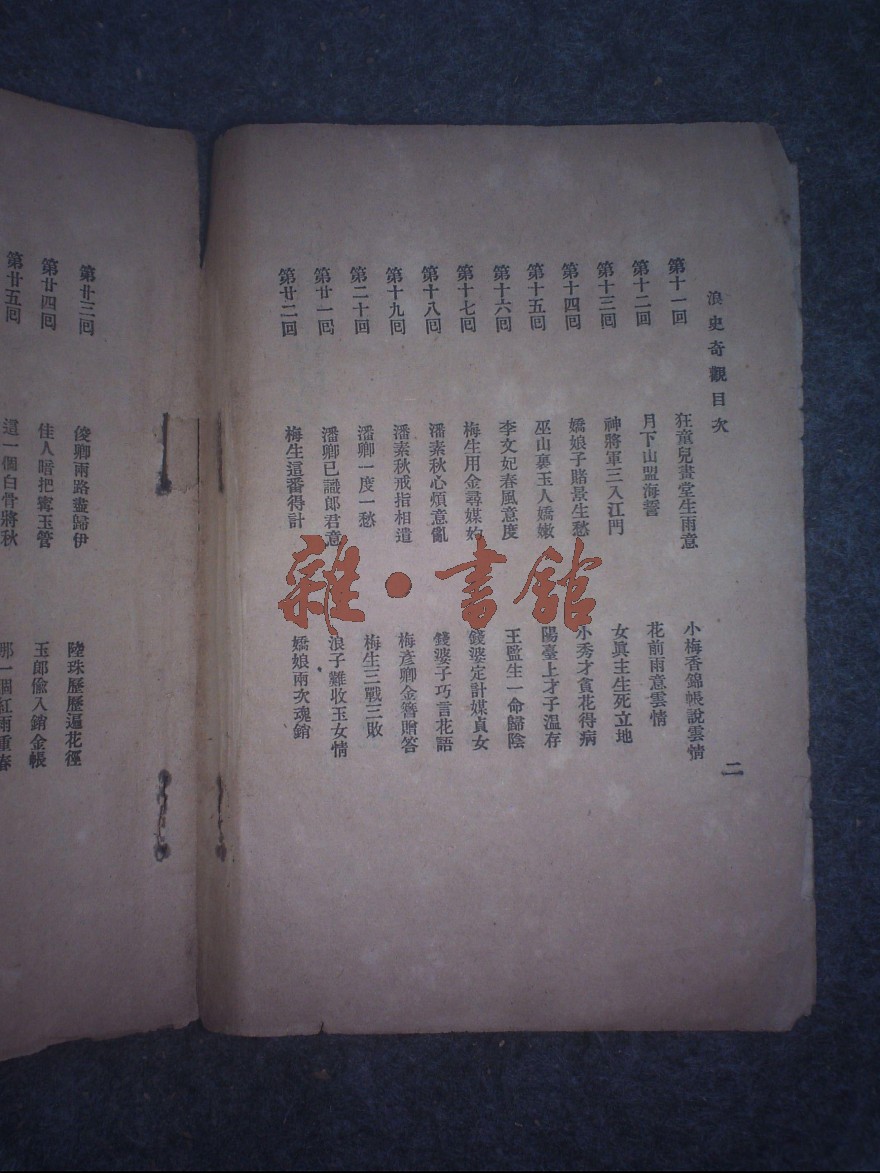 浪史奇觀目次
二
第十一回 狂童兒畫堂生雨意 小梅香錦帳說雲情
第十二回 月下山盟海誓 花前雨意雲情
第十三回 神將軍三入江門 女眞主生死立地
第十四回 嬌娘子賭景生愁 小秀才貪花得病
第十五回 巫山裏玉人嬌嫩 陽臺上才子溫存
第十六回 李文妃春風意度 王監生一命歸陰
第十七回 梅生用金尋媒妁 錢婆定計媒貞女
第十八回 潘素秋心煩意亂 錢婆子巧言花語
第十九回 潘素秋戒指相遺 梅彥卿金簪贈答
第二十回 潘卿一度一愁 梅生三戰三敗
第廿一回 潘卿已識郎君意 浪子難收玉女情
第廿二回 梅生這番得計 嬌娘兩次魂銷
第廿三回 俊卿兩路盡歸伊 陸珠歷歷逼花徑
第廿四回 佳人暗把寗玉管 玉郎偸入銷金帳
第廿五回 這一個白骨將秋 那一個紅雨重春
雜·書館